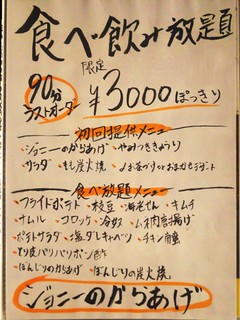 食べ飲み放題
限定
90分
ラストオーダー
¥3000ぽっきり
初回提供メニュー
・ジョニーのからあげ ・やみつききゅうり
・サラダ ・もも炭火焼 ・お茶づけ or おまかせデザート
食べ放題メニュー
・フライドポテト ・枝豆 ・海老せん ・キムチ
・ナムル ・コロッケ ・冷奴 ・ムネ肉唐揚げ
・ポテトサラダ ・塩ダレキャベツ ・チキン南蛮
・とり皮パリパリポン酢
・ぼんじりのからあげ ・ぼんじりの炭火焼
ジョニーのからあげ